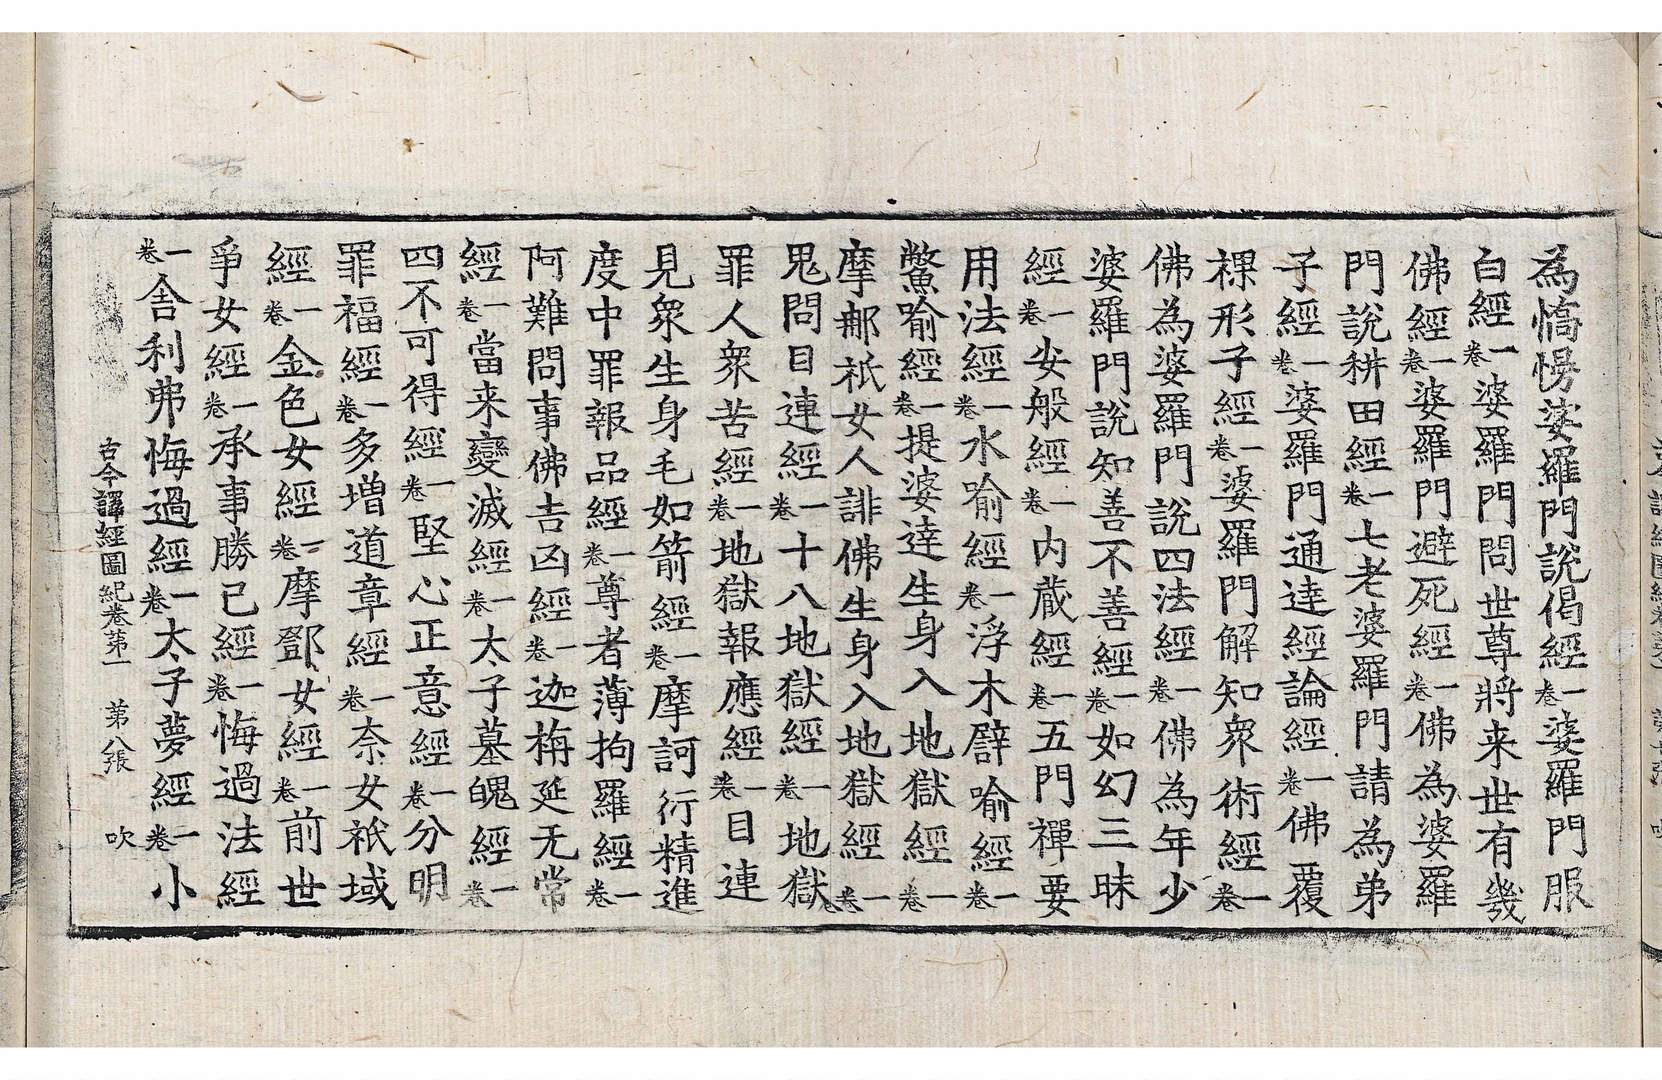 為憍慢婆羅門說偈經一卷婆羅門服
白經一卷婆羅門問世尊將来世有幾
佛經一卷婆羅門避死經一卷佛為婆羅
門說耕田經一卷七老婆羅門請為弟
子經一卷婆羅門通達經論經一卷佛覆
裸形子經一卷婆羅門解知衆術經一卷
佛為婆羅門說四法經一卷佛為年少
婆羅門說知善不善經一卷如幻三昧
經一卷安般經一卷内蔵經一卷五門禪要
用法經一卷水喻經一卷浮木譬喻經一卷
鱉喻經一卷提婆達生身入地獄經一卷
摩郍祇女人誹佛生身入地獄經一卷
鬼問目連經一卷十八地獄經一卷地獄
罪人衆苦經一卷地獄報應經一卷目連
見衆生身毛如箭經一卷摩訶衍精進
度中罪報品經一卷尊者薄拘羅經一卷
阿難問事佛吉凶經一卷迦栴延无常
經一卷當来變滅經一卷太子墓魄經一卷
四不可得經一卷堅心正意經一卷分明
罪福經一卷多增道章經一卷奈女祇域
經一卷金色女經一卷摩鄧女經一卷前世
爭女經一卷承事勝已經一卷悔過法經
一卷舍利弗悔過經一卷太子夢經一卷小
古今譯經圖紀卷苐一 苐八張 吹